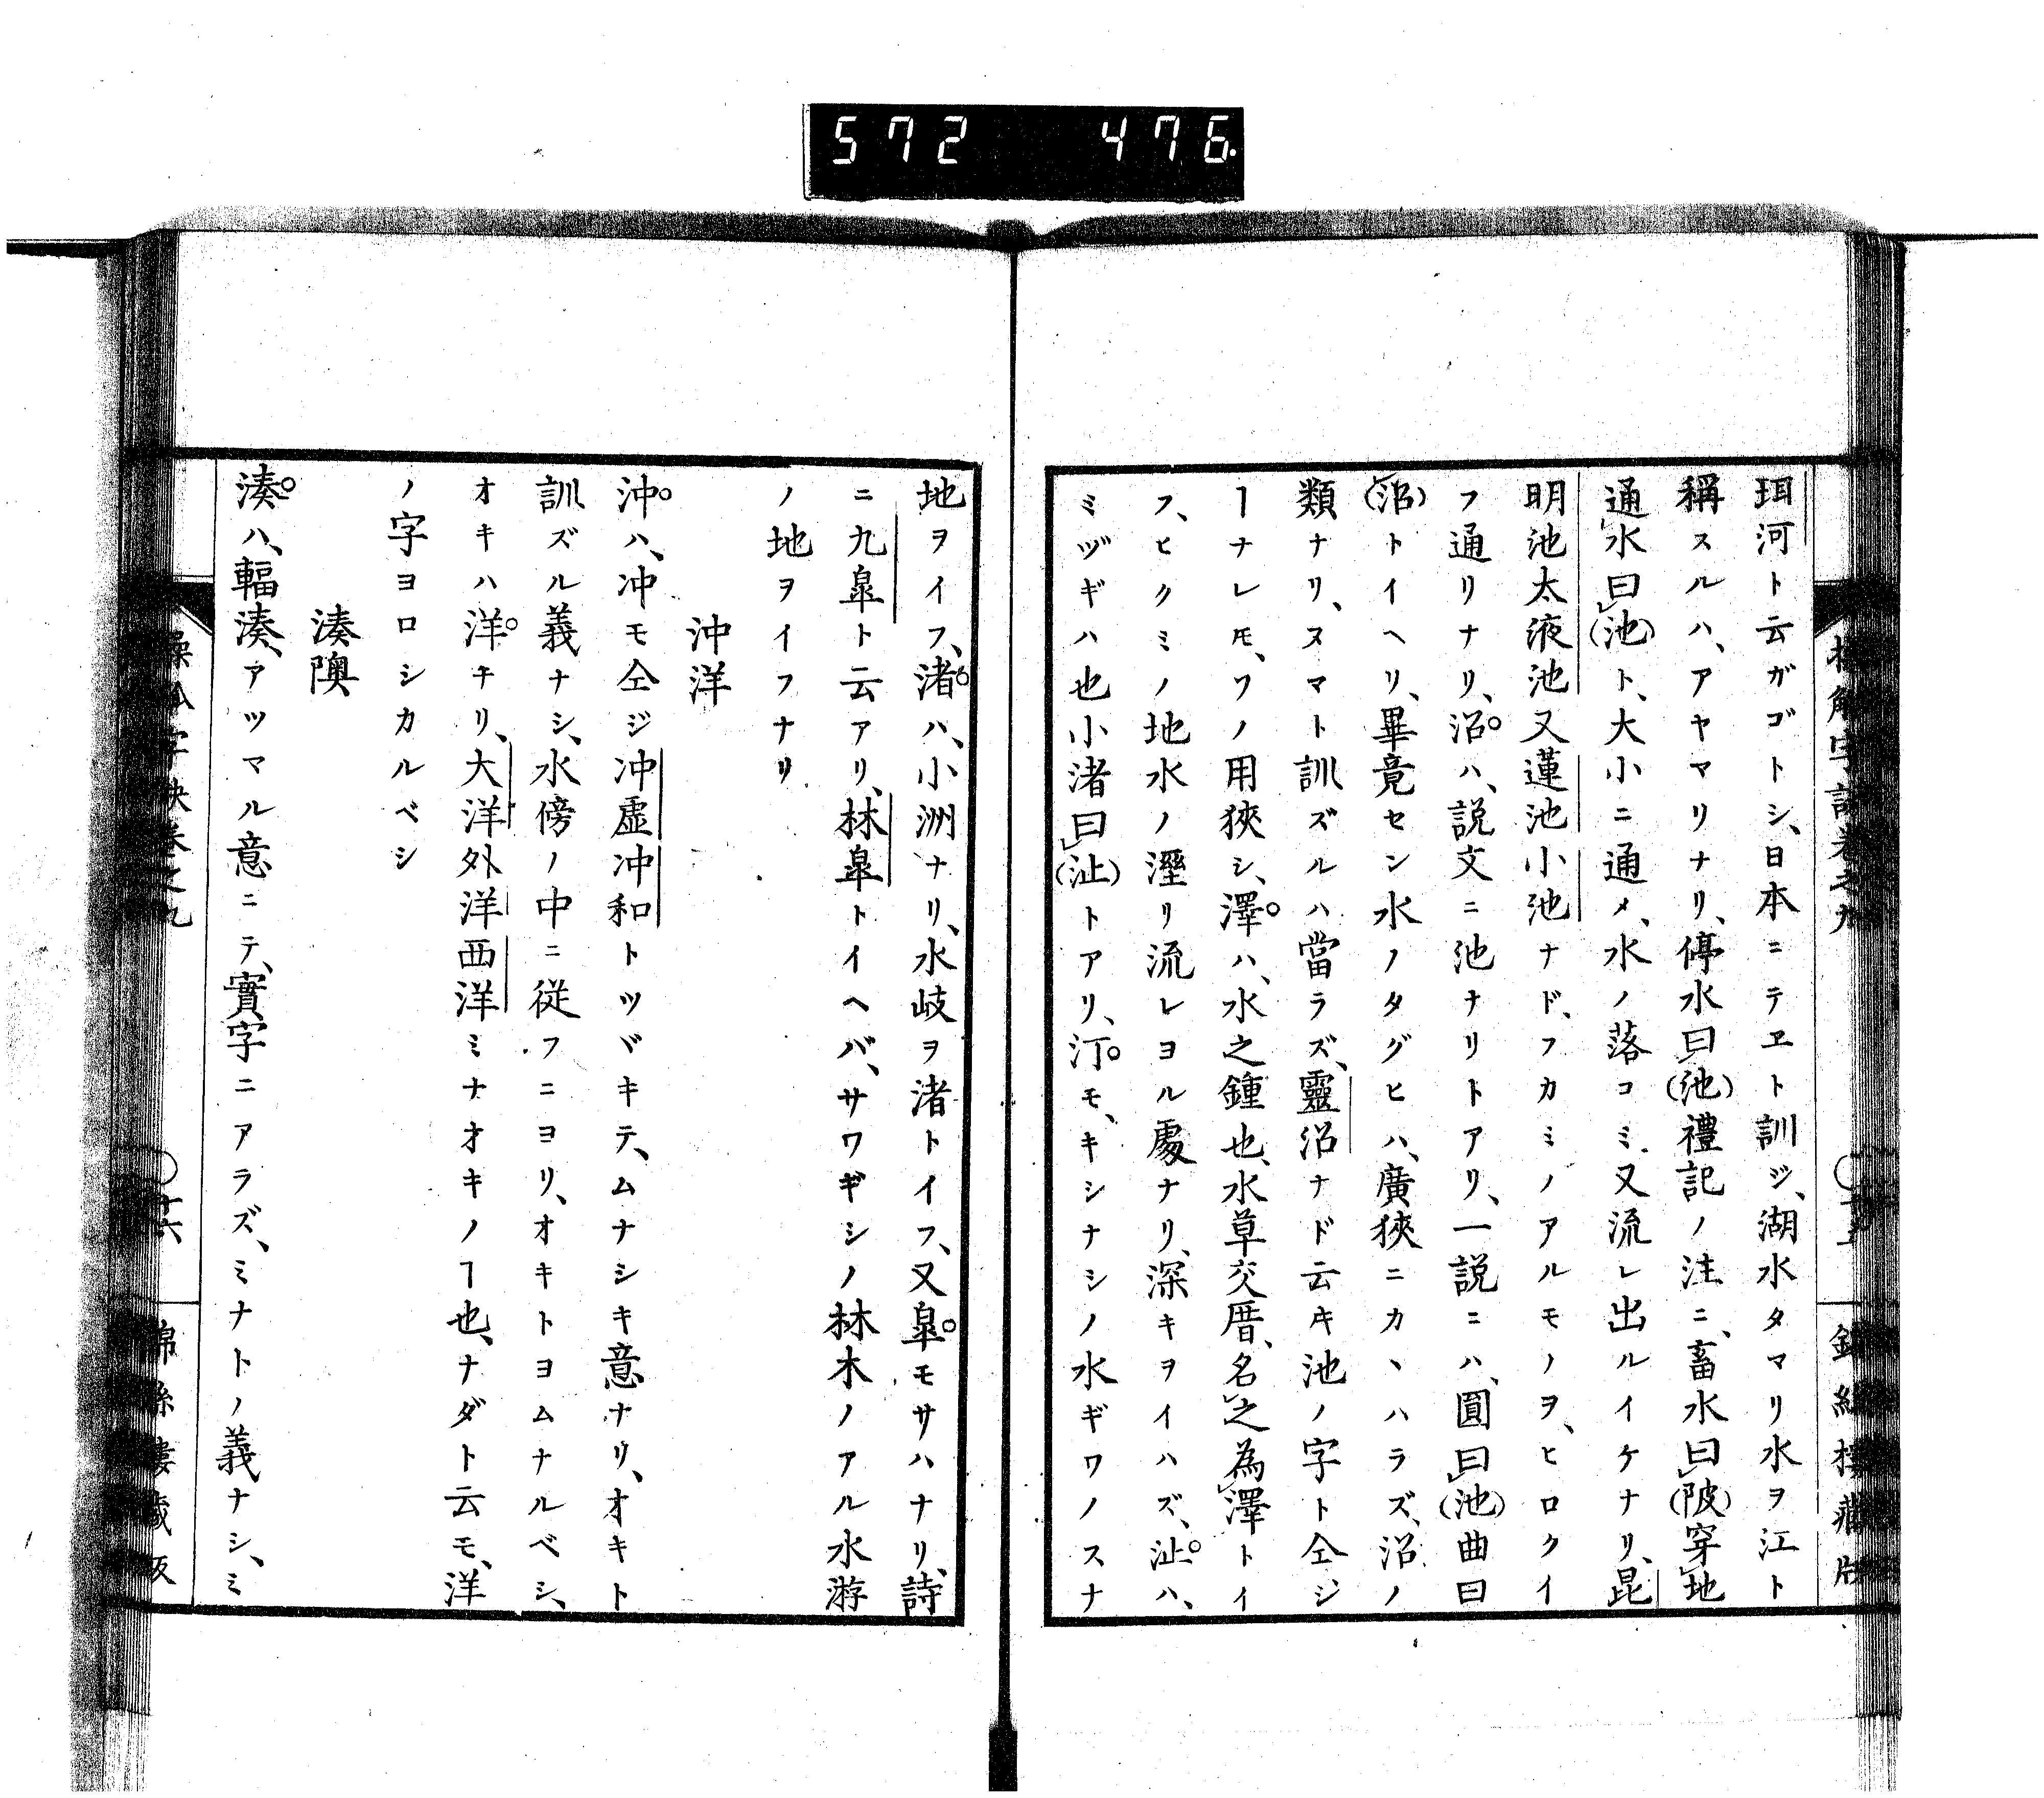 572 476
珥河ト云ガゴトシ、日本ニテヱト訓ジ、湖水タマリ水ヲ江ト
稱スルハ、アヤマリナリ、停水曰(池)禮記ノ注ニ、畜水曰(陂)穿地
通水曰(池)ト、大小ニ通メ、水ノ落コミ、又流レ出ルイケナリ、昆
明池太液池又蓮池小池ナド、フカミノアルモノヲ、ヒロクイ
フ通リナリ、沼ハ、説文ニ池ナリトアリ、一説ニハ、圓曰(池)曲曰
(沼)トイヘリ、畢竟セン水ノタグヒハ、廣狹ニカヽハラズ、沼ノ
類ナリ、ヌマト訓ズルハ當ラズ、靈沼ナド云キ池ノ字ト仝ジ
ヿナレモ、ワノ用狹シ、澤ハ、水之鍾也、水草交厝、名之為澤トイ
フ、ヒクミノ地水ノ溼リ流レヨル處ナリ、深キヲイハズ、沚ハ、
ミヅギハ也小渚曰(沚)トアリ、汀モ、キシナシノ水ギワノスナ
地ヲイフ、渚ハ、小洲ナリ、水岐ヲ渚トイフ、又皐モサハナリ、詩
ニ九皐ト云アリ、林皐トイヘバ、サワギシノ林木ノアル水游
ノ地ヲイフナリ
沖洋
沖ハ、冲モ仝ジ冲虚冲和トツヾキテ、ムナシキ意ナリ、オキト
訓ズル義ナシ、水傍ノ中ニ従フニヨリ、オキトヨムナルベシ、
オキハ洋キリ、大洋外洋西洋ミナオキノヿ也、ナダト云モ、洋
ノ字ヨロシカルベシ
湊隩
湊ハ、輻湊、アツマル意ニテ、實字ニアラズ、ミナトノ義ナシ、ミ
操觚字訣巻之九 十六